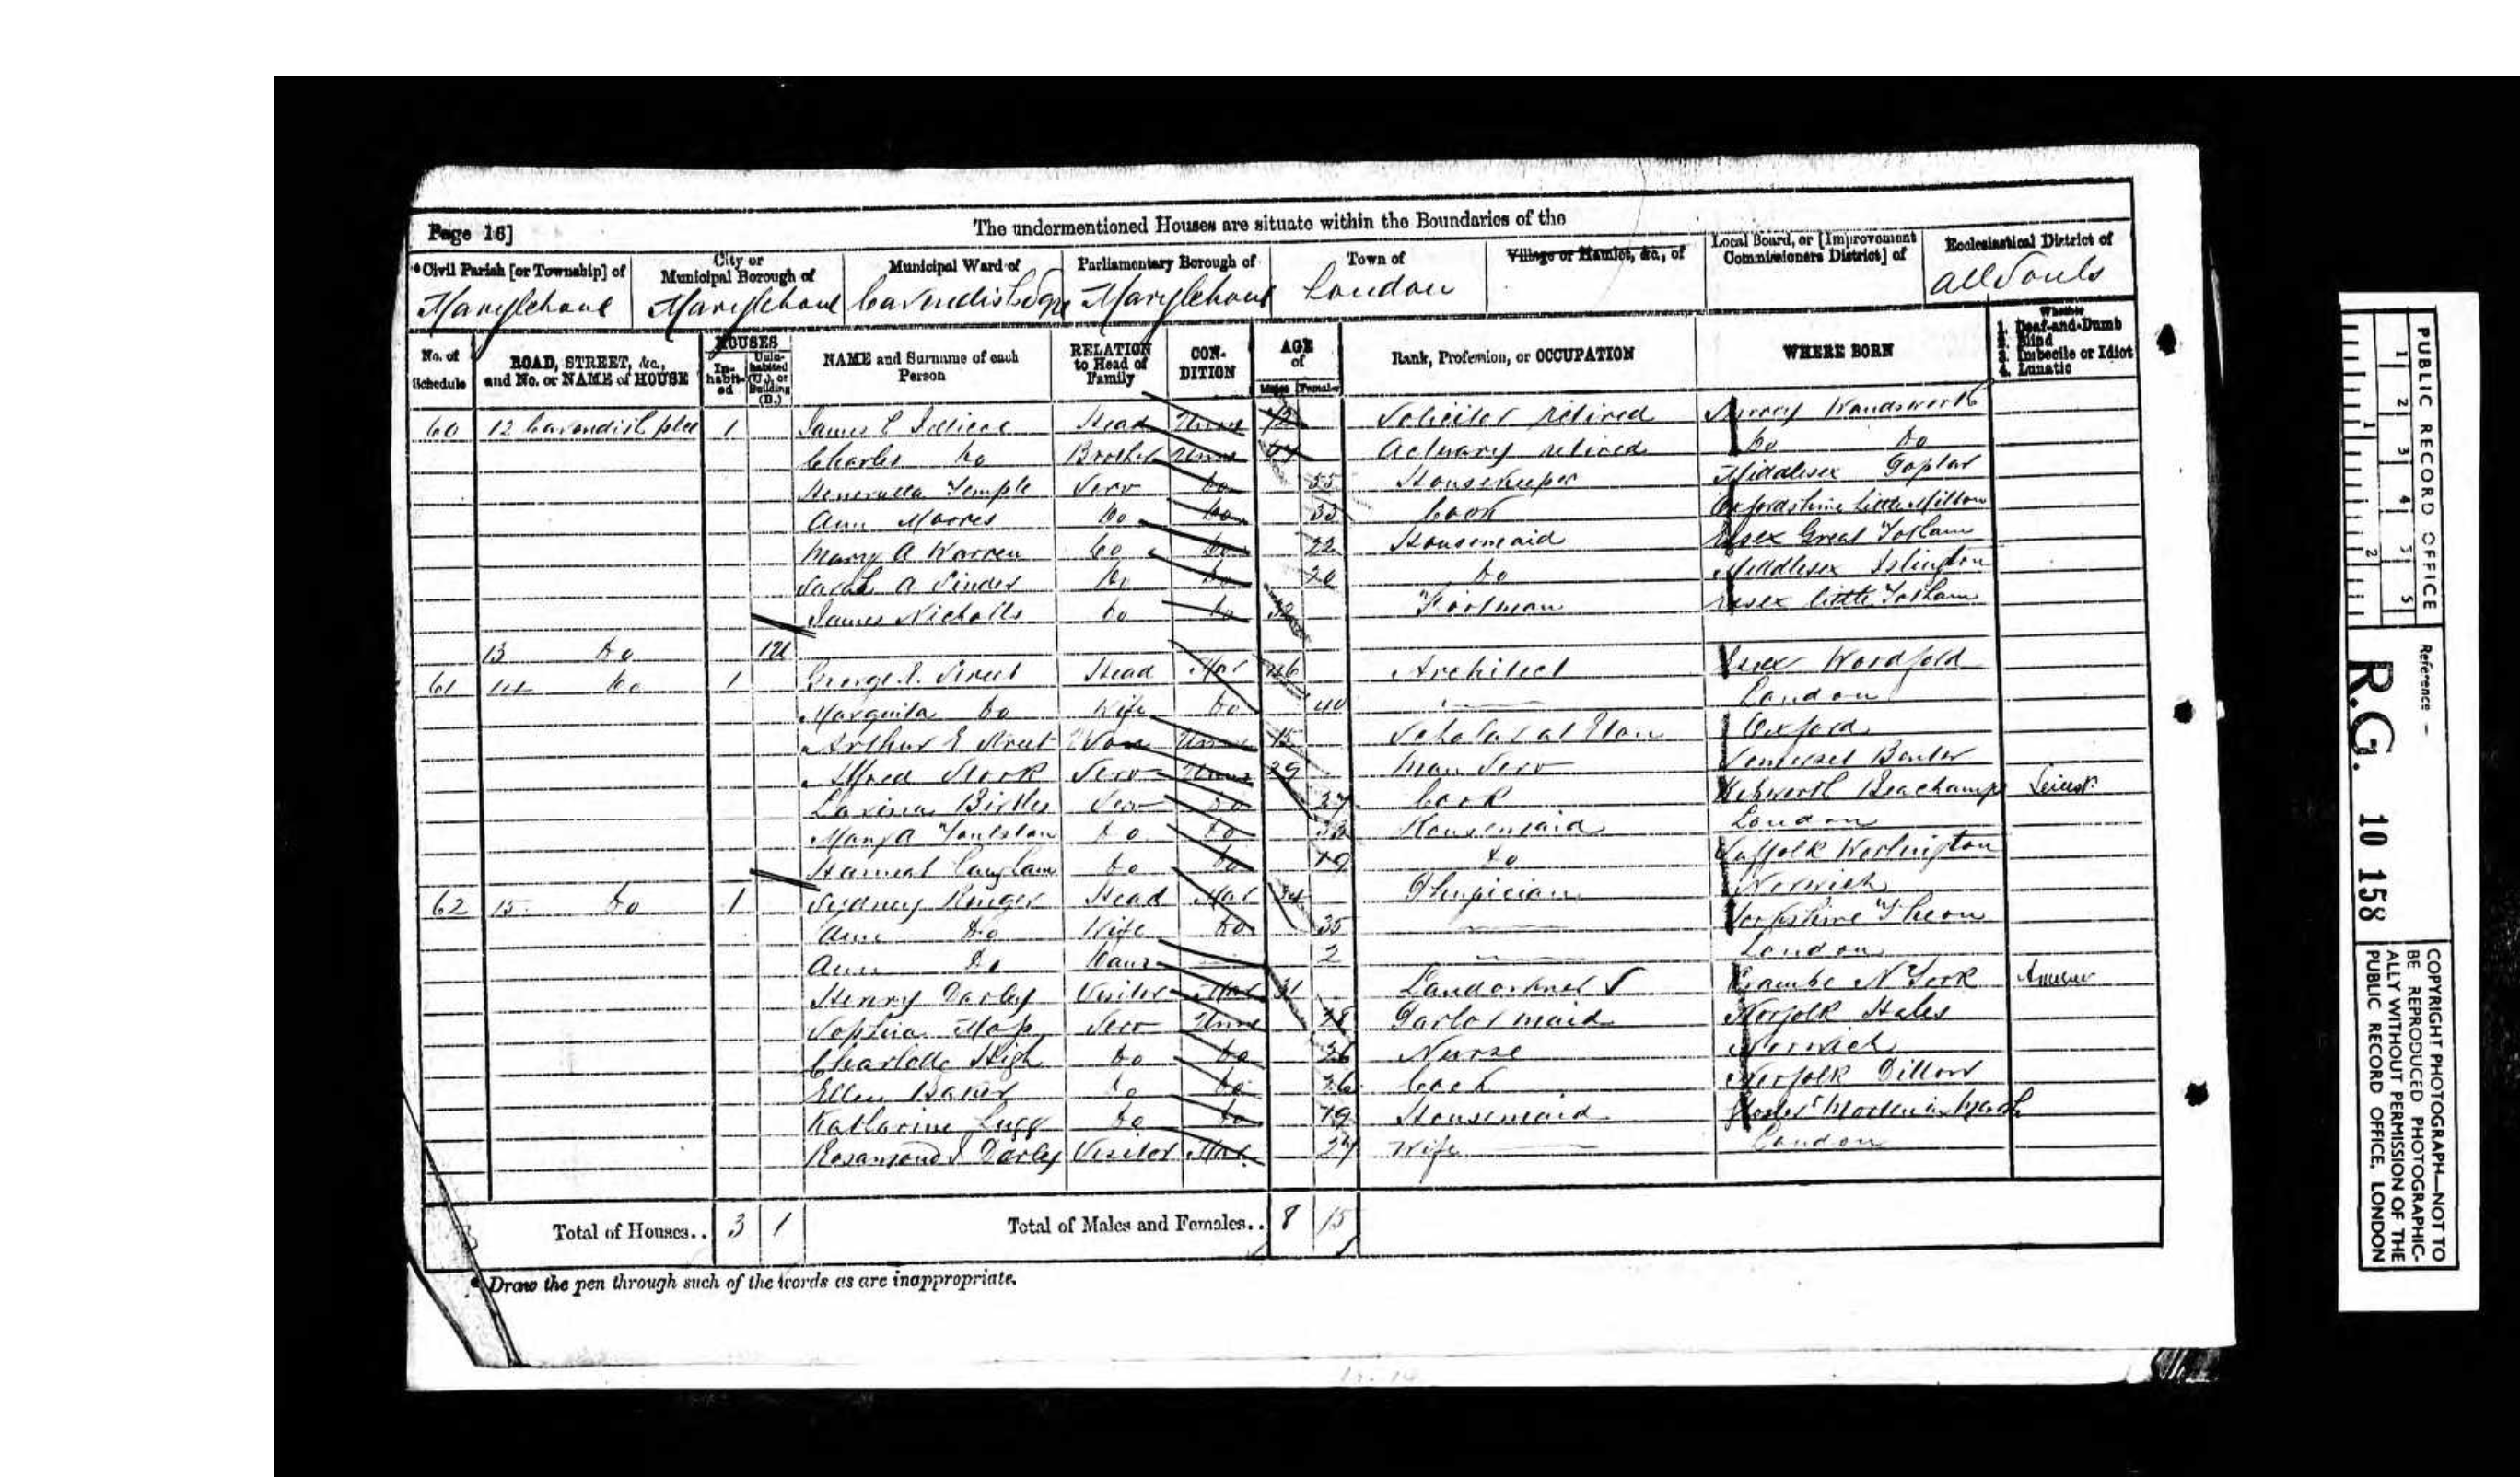 Page 16]
The undermentioned Houses are situate within the Boundaries of the
*Civil Parish [or Township] of
City or Municipal Borough of
Municipal Ward of
Parliamentary Borough of
Town of
Village or Hamlet, &c., of
Local Board, or [Improvement Commissioners District] of
Ecclesiastical District of
Marylebone Marylebone Cavendish Sqre Marylebone London All Souls
No. of Schedule
ROAD, STREET, &c., and No. or NAME of HOUSE
HOUSES
Inhabited
Uninhabited (U.), or Building (B.)
NAME and Surname of each Person
RELATION to Head of Family
CONDITION
AGE of
Males Females
Rank, Profession, or OCCUPATION
WHERE BORN
Whether
1. Deaf-and-Dumb
2. Blind
3. Imbecile or Idiot
4. Lunatic
60 12 Cavendish plce 1 James C Head Unm Solicitor retired Surrey Wandsworth
Charles Do Brother Unm Actuary retired Do Do
Temple Serv Do 55 Housekeeper Middlesex Poplar
Ann Morres Do Do 33 Cook Oxfordshire Little Milton
Mary A Warren Do Do 22 Housemaid Essex Great Totham
Sarah A Pinder Do Do 20 Do Middlesex Islington
James Nicholls Do Do 32 Footman Essex little Totham
13 Do 1U
61 14 Do 1 George E. Street Head Mar 46 Architect Essex Woodford
Marquita Do Wife Do 40 London
Arthur E Street Son Unm 15 Scholar at Eton Oxford
Alfred Stork Serv Unm 29 Man Serv Somerset
Lavinia Birtles Serv Do 37 Cook Beachamp Leicestr
Mary A Do Do 33 Housemaid London
Hannah Langham Do Do 19 Do Suffolk Worlington
62 15 Do 1 Sydney Ringer Head Mar 34 Physician Norwich
Ann Do Wife Do 35 Yorkshire
Ann Do Daur 2 London
Henry Darley Visitor Mar 31 Landowner Crambe N York
Sophia Serv Unm 28 Parlormaid Norfolk Hales
Charlotte High Do Do 36 Nurse Norwich
Ellen Baker Do Do 26 Cook Norfolk
Katharine Lugg Do Do 19 Housemaid Morton in Marsh
Rosamond I Darley Visitor Mar. 27 Wife London
Total of Houses.. 3 1
Total of Males and Females.. 8 15
* Draw the pen through such of the words as are inappropriate.
PUBLIC RECORD OFFICE
1 2 3 4 5
1 2
Reference –
R.G. 10 158
COPYRIGHT PHOTOGRAPH—NOT TO
BE REPRODUCED PHOTOGRAPHIC-
ALLY WITHOUT PERMISSION OF THE
PUBLIC RECORD OFFICE, LONDON